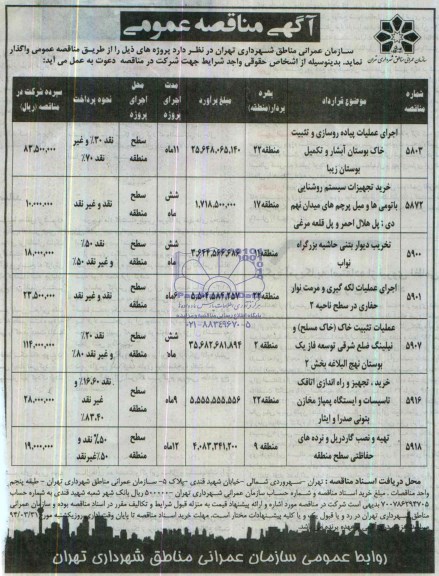 آگهی مناقصه عمومی
سازمان عمرانی مناطق شهرداری تهران در نظر دارد پروژه های ذیل را از طریق مناقصه عمومی واگذار
نماید. بدینوسیله از اشخاص حقوقی واجد شرایط جهت شرکت در مناقصه دعوت به عمل می آید:
شماره مناقصه | موضوع قرارداد | بهره بردار(منطقه) | مبلغ برآورد | مدت اجرای پروژه | محل اجرای پروژه | نحوه پرداخت | سپرده شرکت در مناقصه (ریال)
۵۸۰۳ | اجرای عملیات پیاده روسازی و تثبیت خاک بوستان آبشار و تکمیل بوستان زیبا | منطقه۲۲ | ۲۵.۶۴۸.۰۶۵.۱۴۰ | ۱۱ماه | سطح منطقه | نقد ۳۰٪ و غیر نقد ۷۰٪ | ۸۳.۵۰۰.۰۰۰
۵۸۷۲ | خرید تجهیزات سیستم روشنایی باتومی ها و میل پرچم های میدان نهم دی ؛ پل هلال احمر و پل قلعه مرغی | منطقه۱۷ | ۱.۷۱۸.۵۰۰.۰۰۰ | شش ماه | سطح منطقه | نقد و غیر نقد | ۱۰.۰۰۰.۰۰۰
۵۹۰۰ | تخریب دیوار بتنی حاشیه بزرگراه نواب | ۳.۶۴۴.۵۶۶.۶۸۶ | شش ماه | سطح منطقه | نقد ۵۰٪ و غیر نقد ۵۰٪ | ۱۸.۰۰۰.۰۰۰
۵۹۰۱ | اجرای عملیات لکه گیری و مرمت نوار حفاری در سطح ناحیه ۲ | ۵.۵۰۴.۵۸۴.۲۵۷ | سطح منطقه | نقد و غیر نقد | ۲۳.۵۰۰.۰۰۰
۵۹۰۷ | عملیات تثبیت خاک (خاک مسلح) و نیلینگ ضلع شرقی توسعه فاز یک بوستان نهج البلاغه بخش ۲ | منطقه ۲ | ۳۵.۶۸۲.۶۸۱.۸۹۴ | شش ماه | سطح منطقه | نقد ۲۰٪ و غیر نقد ۸۰٪ | ۱۱۴.۰۰۰.۰۰۰
۵۹۱۶ | خرید ، تجهیز و راه اندازی اتاقک تاسیسات و ایستگاه پمپاژ مخازن بتونی صدرا و ایثار | منطقه۲۲ | ۵.۵۵۵.۵۵۵.۵۵۶ | ۹ماه | سطح منطقه | نقد ۱۶.۶۰٪ و غیر نقد ۸۳.۴۰٪ | ۲۸.۰۰۰.۰۰۰
۵۹۱۸ | تهیه و نصب گاردریل و نرده های حفاظتی سطح منطقه | منطقه ۹ | ۴.۰۸۳.۳۴۱.۲۰۰ | ۱۲ماه | سطح منطقه | ۵۰٪ نقد و ۵۰٪ غیرنقد | ۱۹.۰۰۰.۰۰۰
۰۲۱-۸۸۳۴۹۶۷۰-۵
محل دریافت اسناد مناقصه : تهران -سهروردی شمالی -خیابان شهید قندی -پلاک ۵- سازمان عمرانی مناطق شهرداری تهران - طبقه پنجم
واحد مناقصات . مبلغ خرید اسناد مناقصه و شماره حساب سازمان عمرانی شهرداری تهران ۵۰۰۰۰۰ ریال بانک شهر شعبه شهید قندی به شماره حساب
۷۰۰۷۸۶۲۹۴۷۰۵ بدیهی است شرکت در مناقصه مورد اشاره و ارائه پیشنهاد قیمت به منزله قبول شرایط و تکالیف مقرر در اسناد مناقصه بوده و سازمان عمرانی
مناطق شهرداری تهران در رد و یا قبول هر یک و یا کلیه پیشنهادات مختار است. مهلت خرید اسناد مناقصه تا پایان وقت اداری روز یکشنبه مورخ ۹۴/۰۳/۳۱
روابط عمومی سازمان عمرانی مناطق شهرداری تهران